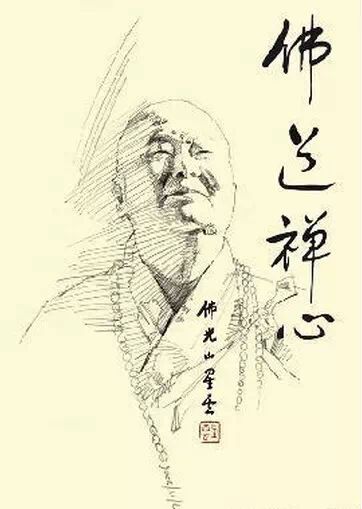 佛道禅心
佛光山星云